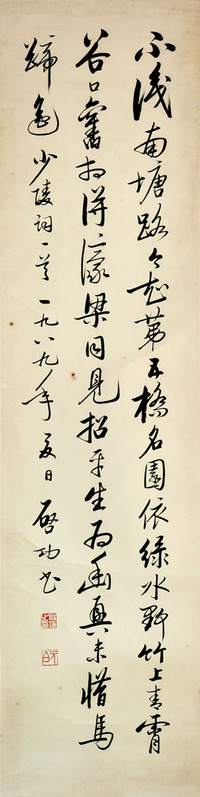 不識南塘路今知第五橋名園依綠水野竹上青霄
谷口舊相得濠梁同見招平生為幽興未惜馬
蹄遙少陵詞一首一九八九年夏日啓功書